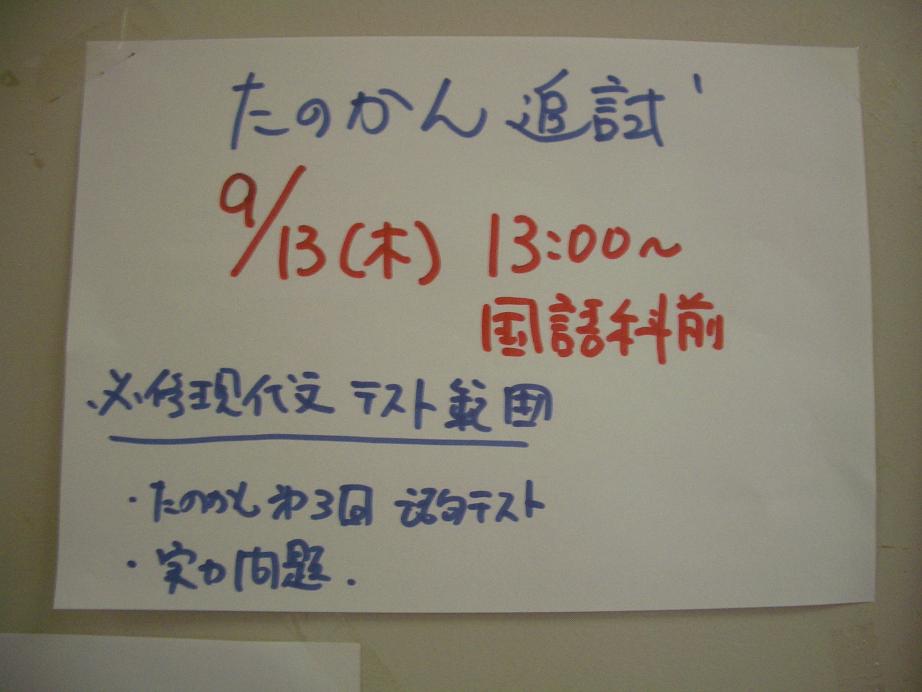 たのかん 追試
9/13(木) 13:00~
国語科前
必修現代文 テスト範囲
・たのかん 第3回 語句テスト
・実力問題.